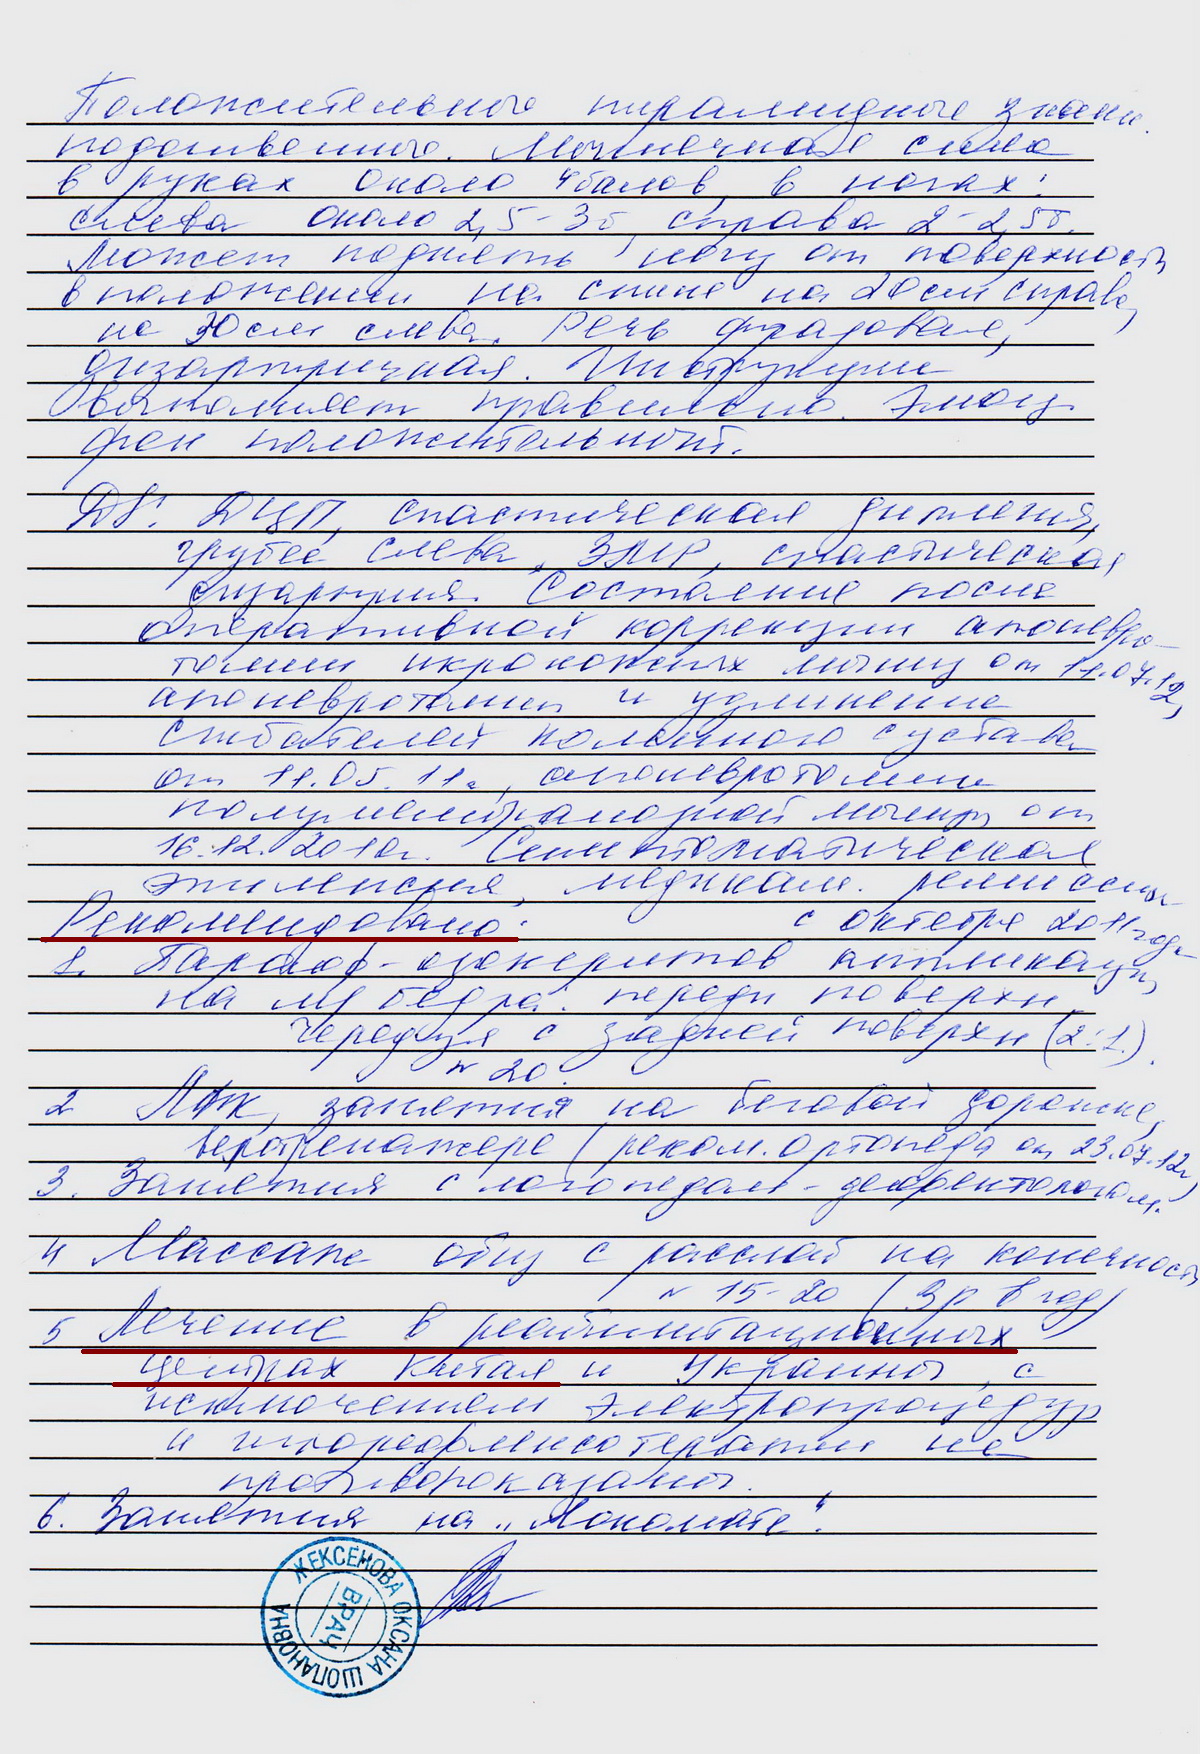 Положительные пирамидные знаки
подошвенные. Мышечная сила
в руках около 4 балов, в ногах:
слева около 2,5-3б, справа 2-2,5б.
Может поднять ногу от поверхности
в положении на спине на 20 см справа,
на 30 см слева. Речь фразовая,
дизартричная. Инструкции
выполняет правильно. Эмоц.
фон положительный.
DS: ДЦП, спастическая диплегия,
грубее слева, ЗПР, спастическая
дизартрия. Состояние после
оперативной коррекции апоневро-
томии икроножных мышц от 11.07.12,
апоневротомии и удлинение
сгибателей коленного сустава
от 11.05.11г., апоневротомии
полумембранозной мышцы от
16.12.2010г. Симптоматическая
эпилепсия, медикам. ремиссия
Рекомендовано: с октября 2011 года
1. Парафф-озокеритов аппликац,
на м/ бедра: передн поверхн
чередуя с задней поверхн (2:1).
N 20.
2 ЛФК, занятия на беговой дорожке,
вертотренажере (реком. ортопеда от 23.07.12г)
3. Занятия с логопедом-дефектологом.
4 Массаж общ с расслаб на конечности
N 15-20 (3 р в год)
5 Лечение в реабилитационных
центрах Китая и Украины, с
исключением электропроцедур
и иглорефлексотерапии не
противопоказаны.
6. Занятия на „Локомате".
ЖЕКСЕНОВА ОКСАНА ШОПАНОВНА
ВРАЧ